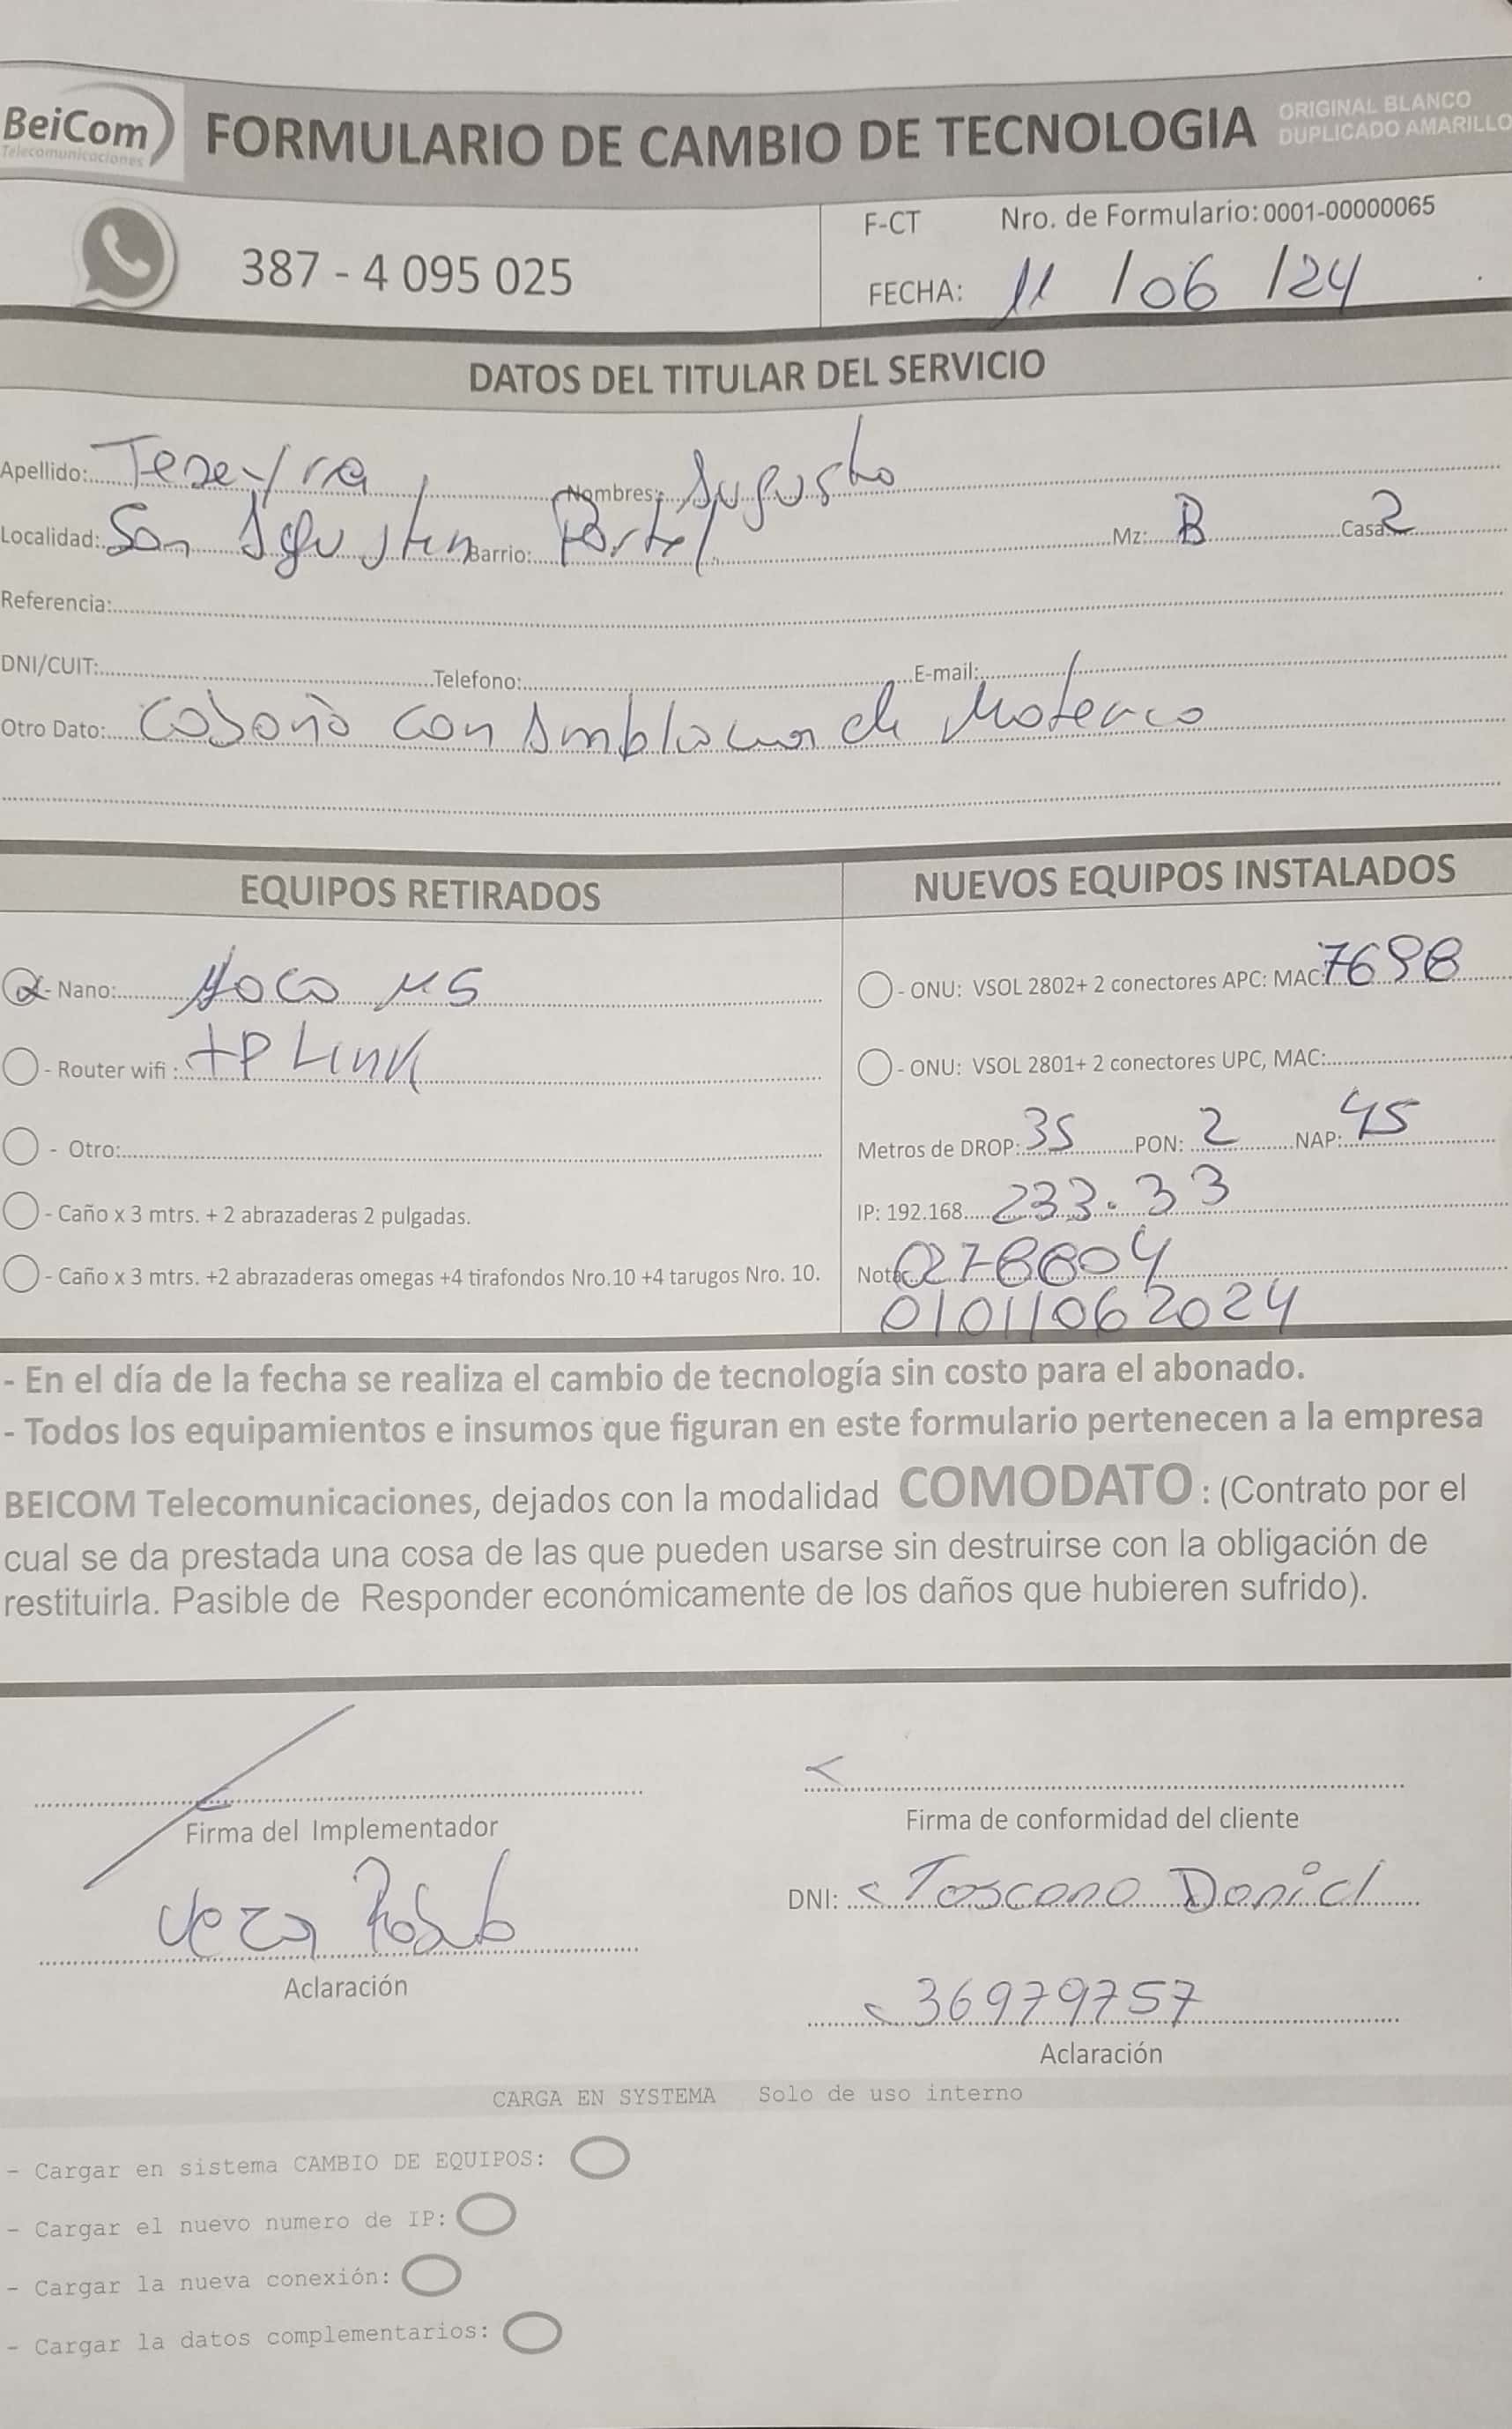 BeiCom
Telecomunicaciones
FORMULARIO DE CAMBIO DE TECNOLOGIA
ORIGINAL BLANCO
DUPLICADO AMARILLO
387 - 4 095 025
F-CT Nro. de Formulario: 0001-00000065
FECHA: 11 / 06 / 24
DATOS DEL TITULAR DEL SERVICIO
Apellido: Teseyra Nombres: Augusto
Localidad: San Agustin Barrio: Portal Mz: B Casa: 2
Referencia:
DNI/CUIT: Telefono: E-mail:
Otro Dato: con de
EQUIPOS RETIRADOS
- Nano: Loco M5
- Router wifi : TP Link
- Otro:
- Caño x 3 mtrs. + 2 abrazaderas 2 pulgadas.
- Caño x 3 mtrs. +2 abrazaderas omegas +4 tirafondos Nro.10 +4 tarugos Nro. 10.
NUEVOS EQUIPOS INSTALADOS
- ONU: VSOL 2802+ 2 conectores APC: MAC: 7698
- ONU: VSOL 2801+ 2 conectores UPC, MAC:
Metros de DROP: 35 PON: 2 NAP: 45
IP: 192.168. 233.33
Nota:
01011062024
- En el día de la fecha se realiza el cambio de tecnología sin costo para el abonado.
- Todos los equipamientos e insumos que figuran en este formulario pertenecen a la empresa
BEICOM Telecomunicaciones, dejados con la modalidad COMODATO : (Contrato por el
cual se da prestada una cosa de las que pueden usarse sin destruirse con la obligación de
restituirla. Pasible de Responder económicamente de los daños que hubieren sufrido).
Firma del Implementador
Vera Pablo
Aclaración
Firma de conformidad del cliente
DNI: Toscano Daniel
36979757
Aclaración
CARGA EN SYSTEMA Solo de uso interno
- Cargar en sistema CAMBIO DE EQUIPOS:
- Cargar el nuevo numero de IP:
- Cargar la nueva conexión:
- Cargar la datos complementarios: